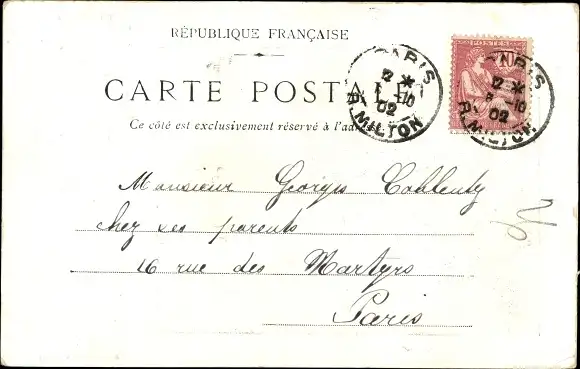 RÉPUBLIQUE FRANÇAISE
CARTE POSTALE
Ce côté est exclusivement réservé à l'adresse
PARIS
12 *
8 -10
02
R. MILTON
POSTES
PARIS
12 *
8 -10
02
R. MILTON
Monsieur Georges Coblentz
chez ses parents
26 rue des Martyrs
Paris